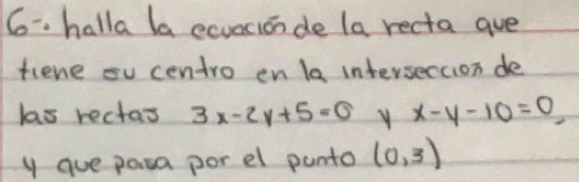 6-. halla la ecuación de la recta que
tiene su centro en la interseccion de
las rectas 3x-2y+5=0 y x-y-10=0
y que pasa por el punto (0,3)